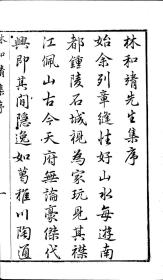 林和靖先生集序
始余列章縫性好山水每遊南
都鍾陵石城視為家玩見其襟
江佩山古今天府無論豪傑代
興即其間隱逸如葛稚川陶通
林和靖集序
一